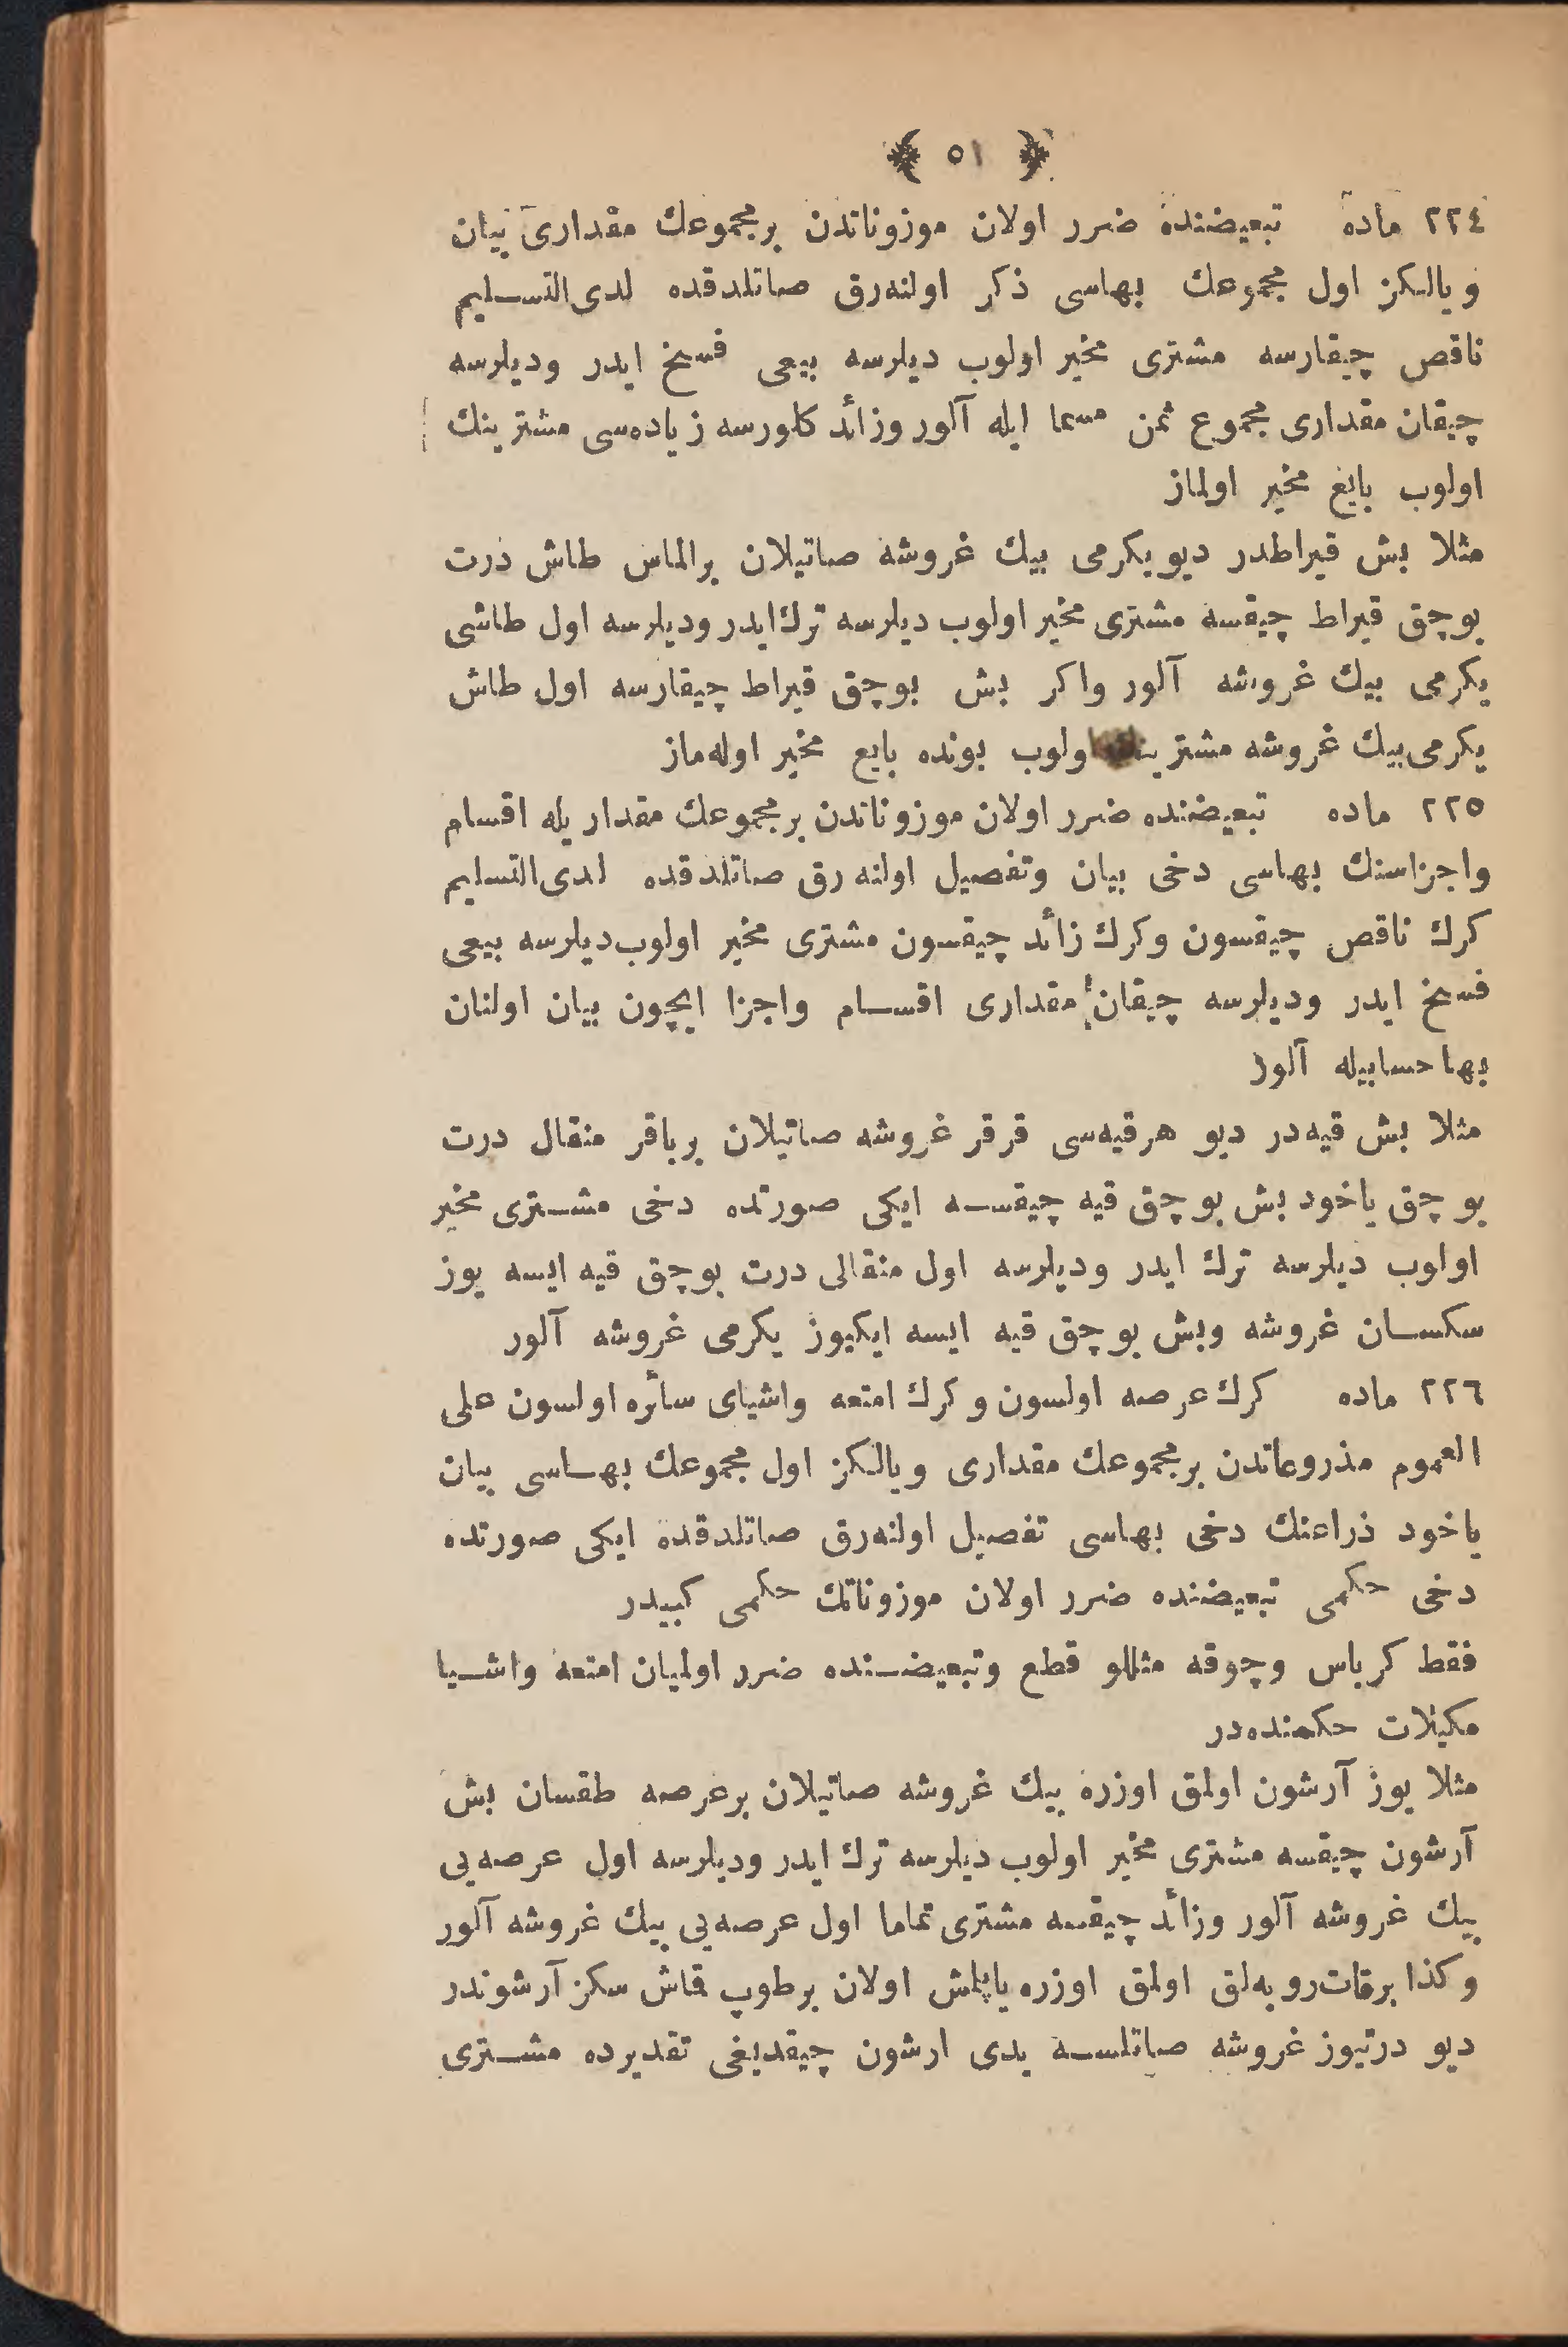 ﴿ ٥١ ﴾
٢٢٤ ماده تبعیضنده ضرر اولان موزوناتدن بر مجموعك مقداری بیان
ویالكز اول مجموعك بهاسی ذكر اولنه‌رق صاتلدقده لدی‌التسلیم
ناقص چیقارسه مشتری مخیر اولوب دیلرسه بیعی فسخ ایدر ودیلرسه
چیقان مقداری مجموع ثمن مسما ایله آلور وزائد كلورسه زیاده‌سی مشترینك
اولوب بایع مخیر اولماز
مثلا بش قیراطدر دیو یكرمی بیك غروشه صاتیلان بر الماس طاش درت
بوچق قیراط چیقسه مشتری مخیر اولوب دیلرسه ترك ایدر ودیلرسه اول طاشی
یكرمی بیك غروشه آلور واكر بش بوچق قیراط چیقارسه اول طاش
یكرمی بیك غروشه مشترینك اولوب بونده بایع مخیر اوله‌ماز
٢٢٥ ماده تبعیضنده ضرر اولان موزوناتدن بر مجموعك مقداریله اقسام
واجزاسنك بهاسی دخی بیان وتفصیل اولنه‌رق صاتلدقده لدی‌التسلیم
كرك ناقص چیقسون وكرك زائد چیقسون مشتری مخیر اولوب دیلرسه بیعی
فسخ ایدر ودیلرسه چیقان مقداری اقسام واجزا ایچون بیان اولنان
بها حسابیله آلور
مثلا بش قیه‌در دیو هر قیه‌سی قرقر غروشه صاتیلان بر باقر منقال درت
بوچق یاخود بش بوچق قیه چیقسه ایكی صورتده دخی مشتری مخیر
اولوب دیلرسه ترك ایدر ودیلرسه اول منقالی درت بوچق قیه ایسه یوز
سكسان غروشه وبش بوچق قیه ایسه ایكیوز یكرمی غروشه آلور
٢٢٦ ماده كرك عرصه اولسون وكرك امتعه واشیای سائره اولسون علی
العموم مذروعاتدن بر مجموعك مقداری ویالكز اول مجموعك بهاسی بیان
یاخود ذراعنك دخی بهاسی تفصیل اولنه‌رق صاتلدقده ایكی صورتده
دخی حكمی تبعیضنده ضرر اولان موزوناتك حكمی كبیدر
فقط كرباس وچوقه مثللو قطع وتبعیضنده ضرر اولمیان امتعه واشیا
مكیلات حكمنده‌در
مثلا یوز آرشون اولمق اوزره بیك غروشه صاتیلان بر عرصه طقسان بش
آرشون چیقسه مشتری مخیر اولوب دیلرسه ترك ایدر ودیلرسه اول عرصه‌یی
بیك غروشه آلور وزائد چیقسه مشتری تماما اول عرصه‌یی بیك غروشه آلور
وكذا بر قات روبه‌لق اولمق اوزره یاپلمش اولان بر طوپ قماش سكز آرشوندر
دیو درتیوز غروشه صاتلسه یدی ارشون چیقدیغی تقدیرده مشتری